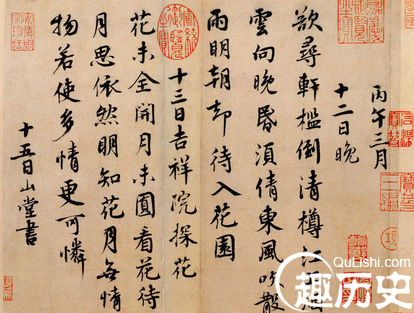 丙午三月
十二日晚
欲尋軒檻倒清樽江上煙
雲向晚昏須倩東風吹散
雨明朝却待入花園
十三日吉祥院探花
花未全開月未圓看花待
月思依然明知花月無情
物若使多情更可憐
十五日山堂書
QuLiShi.com
趣历史